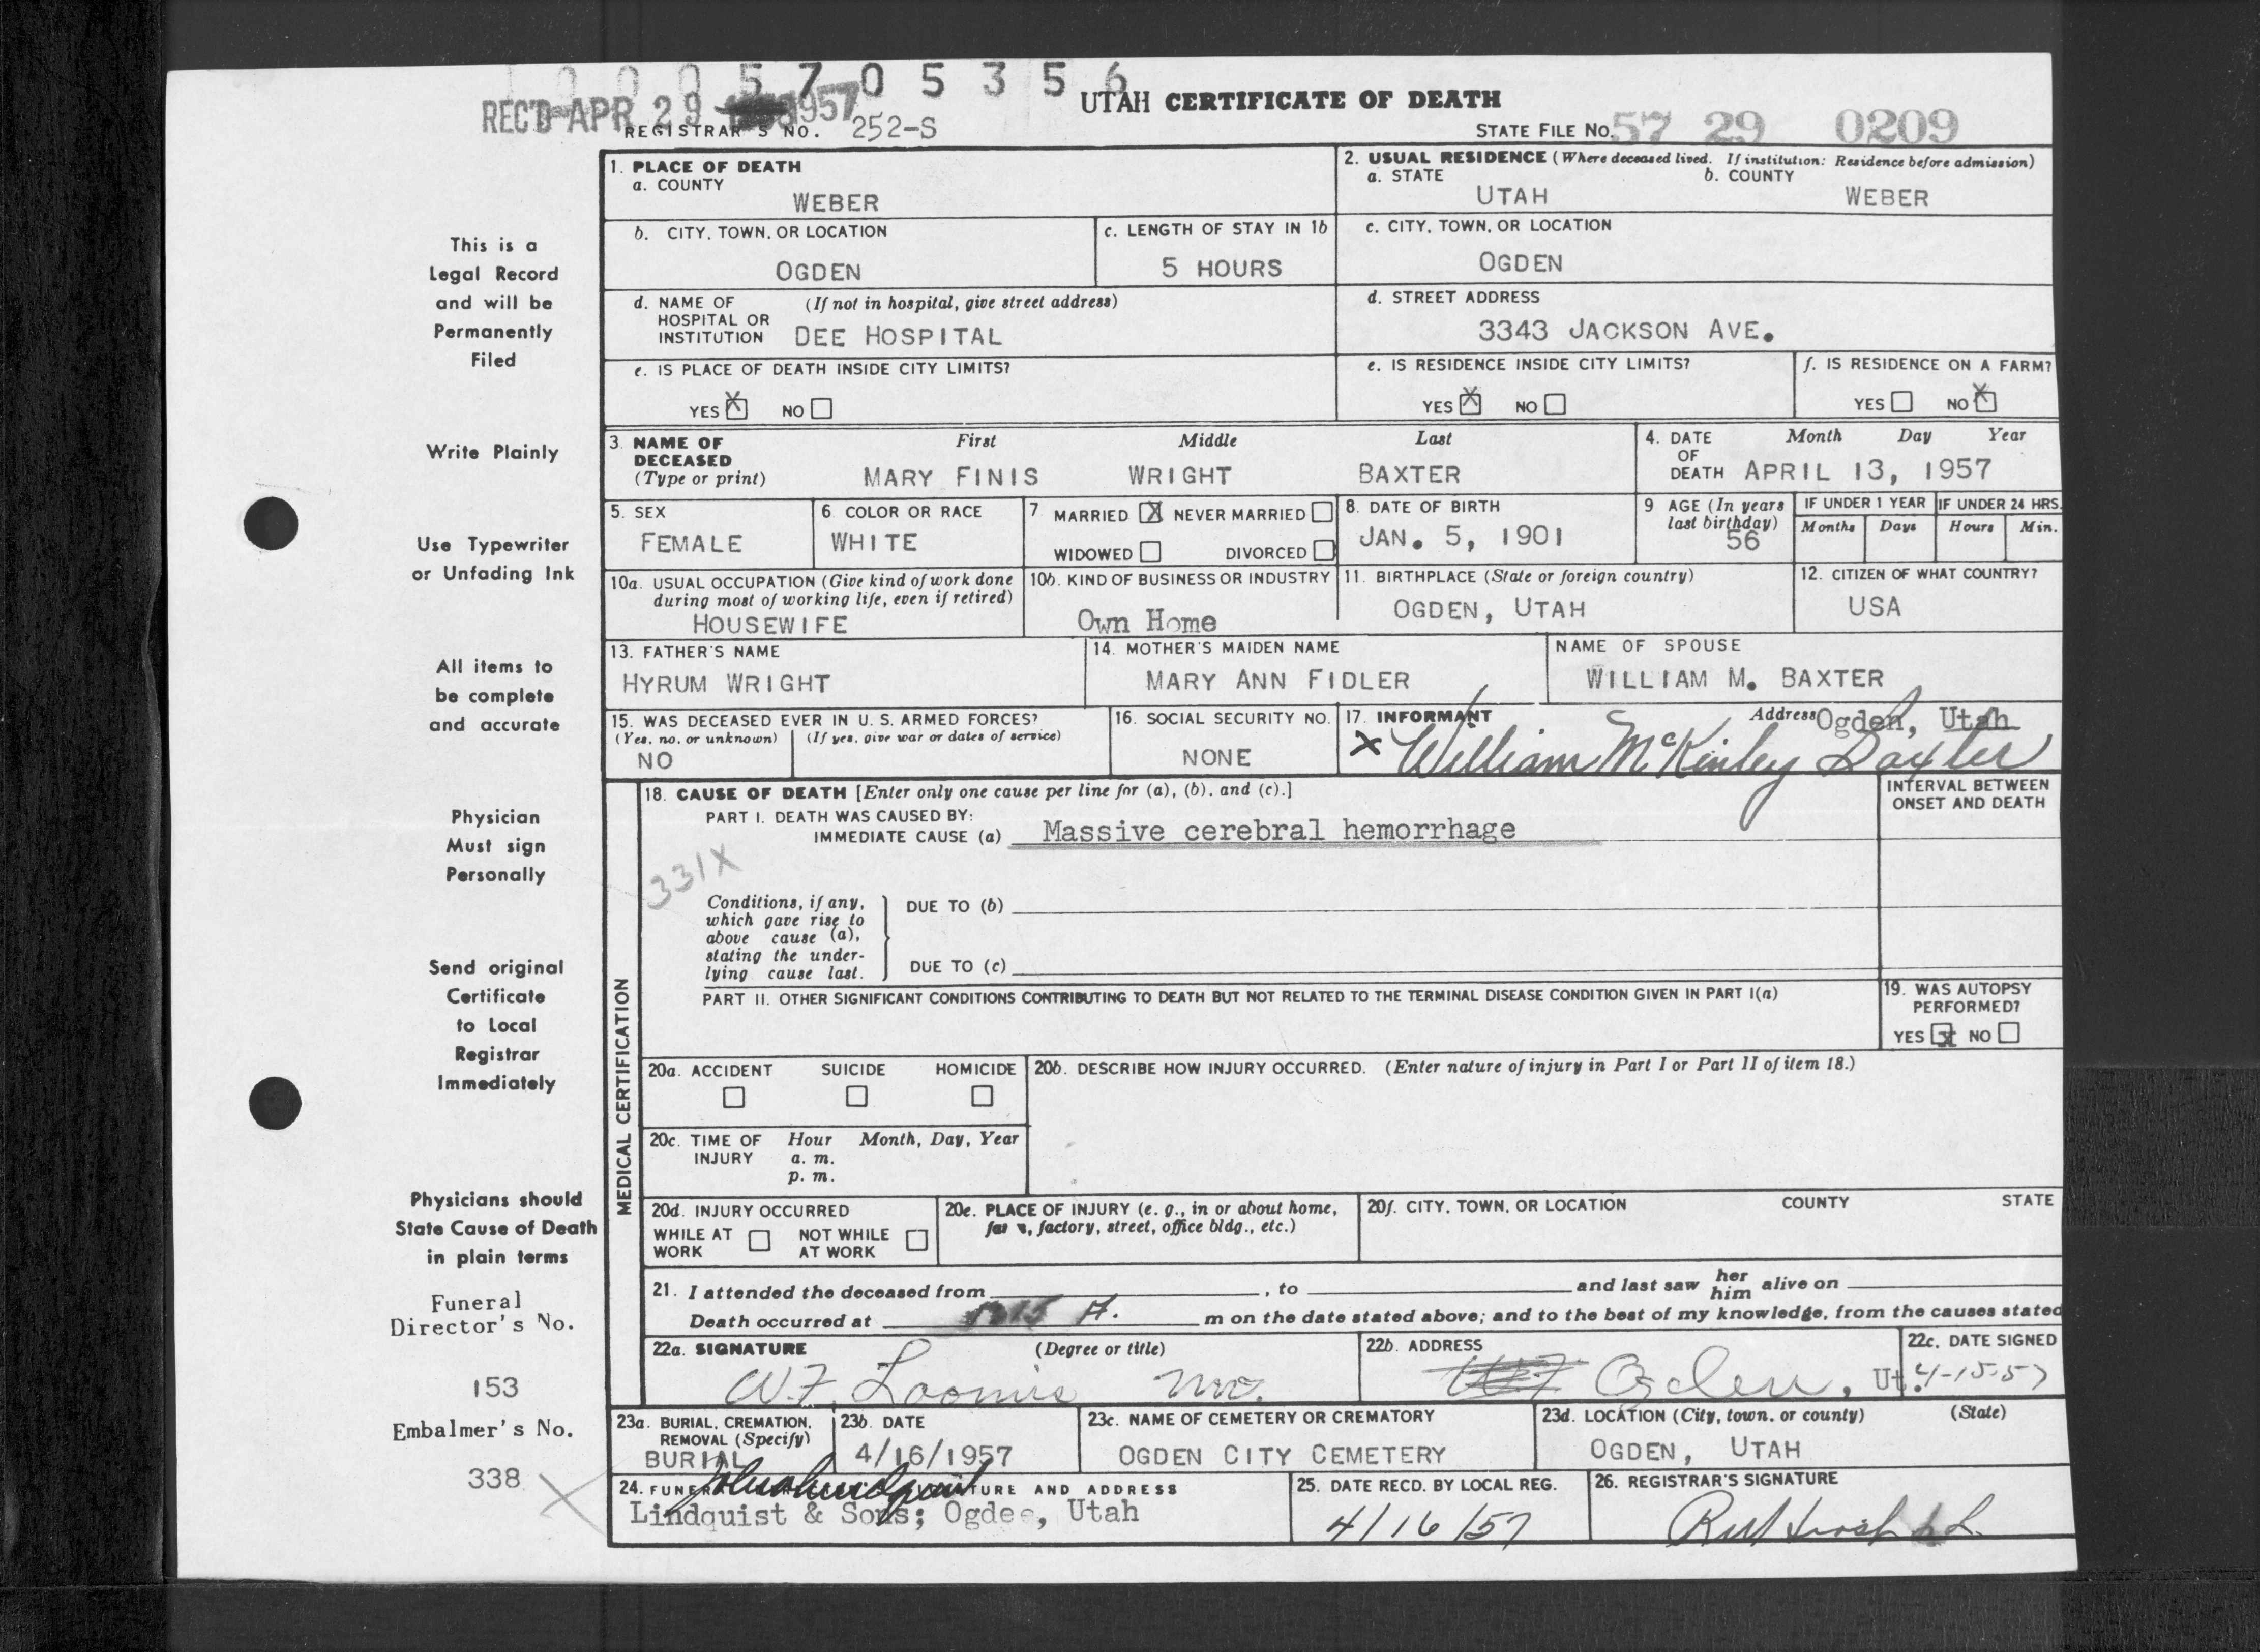 1 0 0 0 5 7 0 5 3 5 6
REC'D APR 29 1957
UTAH CERTIFICATE OF DEATH
REGISTRAR'S NO. 252-S
STATE FILE NO. 57 29 0209
This is a
Legal Record
and will be
Permanently
Filed
Write Plainly
Use Typewriter
or Unfading Ink
All items to
be complete
and accurate
Physician
Must sign
Personally
Send original
Certificate
to Local
Registrar
Immediately
Physicians should
State Cause of Death
in plain terms
Funeral
Director's No.
153
Embalmer's No.
338
1. PLACE OF DEATH
a. COUNTY
WEBER
2. USUAL RESIDENCE (Where deceased lived. If institution: Residence before admission)
a. STATE b. COUNTY
UTAH WEBER
b. CITY, TOWN, OR LOCATION
OGDEN
c. LENGTH OF STAY IN 1b
5 HOURS
c. CITY, TOWN, OR LOCATION
OGDEN
d. NAME OF (If not in hospital, give street address)
HOSPITAL OR
INSTITUTION DEE HOSPITAL
d. STREET ADDRESS
3343 JACKSON AVE.
e. IS PLACE OF DEATH INSIDE CITY LIMITS?
YES X NO
e. IS RESIDENCE INSIDE CITY LIMITS?
YES X NO
f. IS RESIDENCE ON A FARM?
YES NO X
3. NAME OF First Middle Last
DECEASED
(Type or print) MARY FINIS WRIGHT BAXTER
4. DATE Month Day Year
OF
DEATH APRIL 13, 1957
5. SEX
FEMALE
6. COLOR OR RACE
WHITE
7. MARRIED X NEVER MARRIED
WIDOWED DIVORCED
8. DATE OF BIRTH
JAN. 5, 1901
9 AGE (In years
last birthday)
56
IF UNDER 1 YEAR
Months Days
IF UNDER 24 HRS.
Hours Min.
10a. USUAL OCCUPATION (Give kind of work done
during most of working life, even if retired)
HOUSEWIFE
10b. KIND OF BUSINESS OR INDUSTRY
Own Home
11. BIRTHPLACE (State or foreign country)
OGDEN, UTAH
12. CITIZEN OF WHAT COUNTRY?
USA
13. FATHER'S NAME
HYRUM WRIGHT
14. MOTHER'S MAIDEN NAME
MARY ANN FIDLER
NAME OF SPOUSE
WILLIAM M. BAXTER
15. WAS DECEASED EVER IN U. S. ARMED FORCES?
(Yes, no, or unknown) (If yes, give war or dates of service)
NO
16. SOCIAL SECURITY NO.
NONE
17. INFORMANT Address Ogden, Utah
X William McKinley Baxter
MEDICAL CERTIFICATION
18. CAUSE OF DEATH [Enter only one cause per line for (a), (b), and (c).]
INTERVAL BETWEEN
ONSET AND DEATH
PART I. DEATH WAS CAUSED BY:
IMMEDIATE CAUSE (a) Massive cerebral hemorrhage
331X
Conditions, if any,
which gave rise to
above cause (a),
stating the under-
lying cause last.
DUE TO (b)
DUE TO (c)
PART II. OTHER SIGNIFICANT CONDITIONS CONTRIBUTING TO DEATH BUT NOT RELATED TO THE TERMINAL DISEASE CONDITION GIVEN IN PART I(a)
19. WAS AUTOPSY
PERFORMED?
YES X NO
20a. ACCIDENT SUICIDE HOMICIDE
20b. DESCRIBE HOW INJURY OCCURRED. (Enter nature of injury in Part I or Part II of item 18.)
20c. TIME OF Hour Month, Day, Year
INJURY a. m.
p. m.
20d. INJURY OCCURRED
WHILE AT NOT WHILE
WORK AT WORK
20e. PLACE OF INJURY (e. g., in or about home,
factory, street, office bldg., etc.)
20f. CITY, TOWN, OR LOCATION COUNTY STATE
21. I attended the deceased from , to and last saw her him alive on
Death occurred at A. m on the date stated above; and to the best of my knowledge, from the causes stated
22a. SIGNATURE (Degree or title)
W.F. Loomis MD.
22b. ADDRESS
Ogden, Ut.
22c. DATE SIGNED
4-15-57
23a. BURIAL, CREMATION,
REMOVAL (Specify)
BURIAL
23b. DATE
4/16/1957
23c. NAME OF CEMETERY OR CREMATORY
OGDEN CITY CEMETERY
23d. LOCATION (City, town, or county) (State)
OGDEN, UTAH
24. FUNER TURE AND ADDRESS
Lindquist & Sons; Ogden, Utah
25. DATE RECD. BY LOCAL REG.
4/16/57
26. REGISTRAR'S SIGNATURE